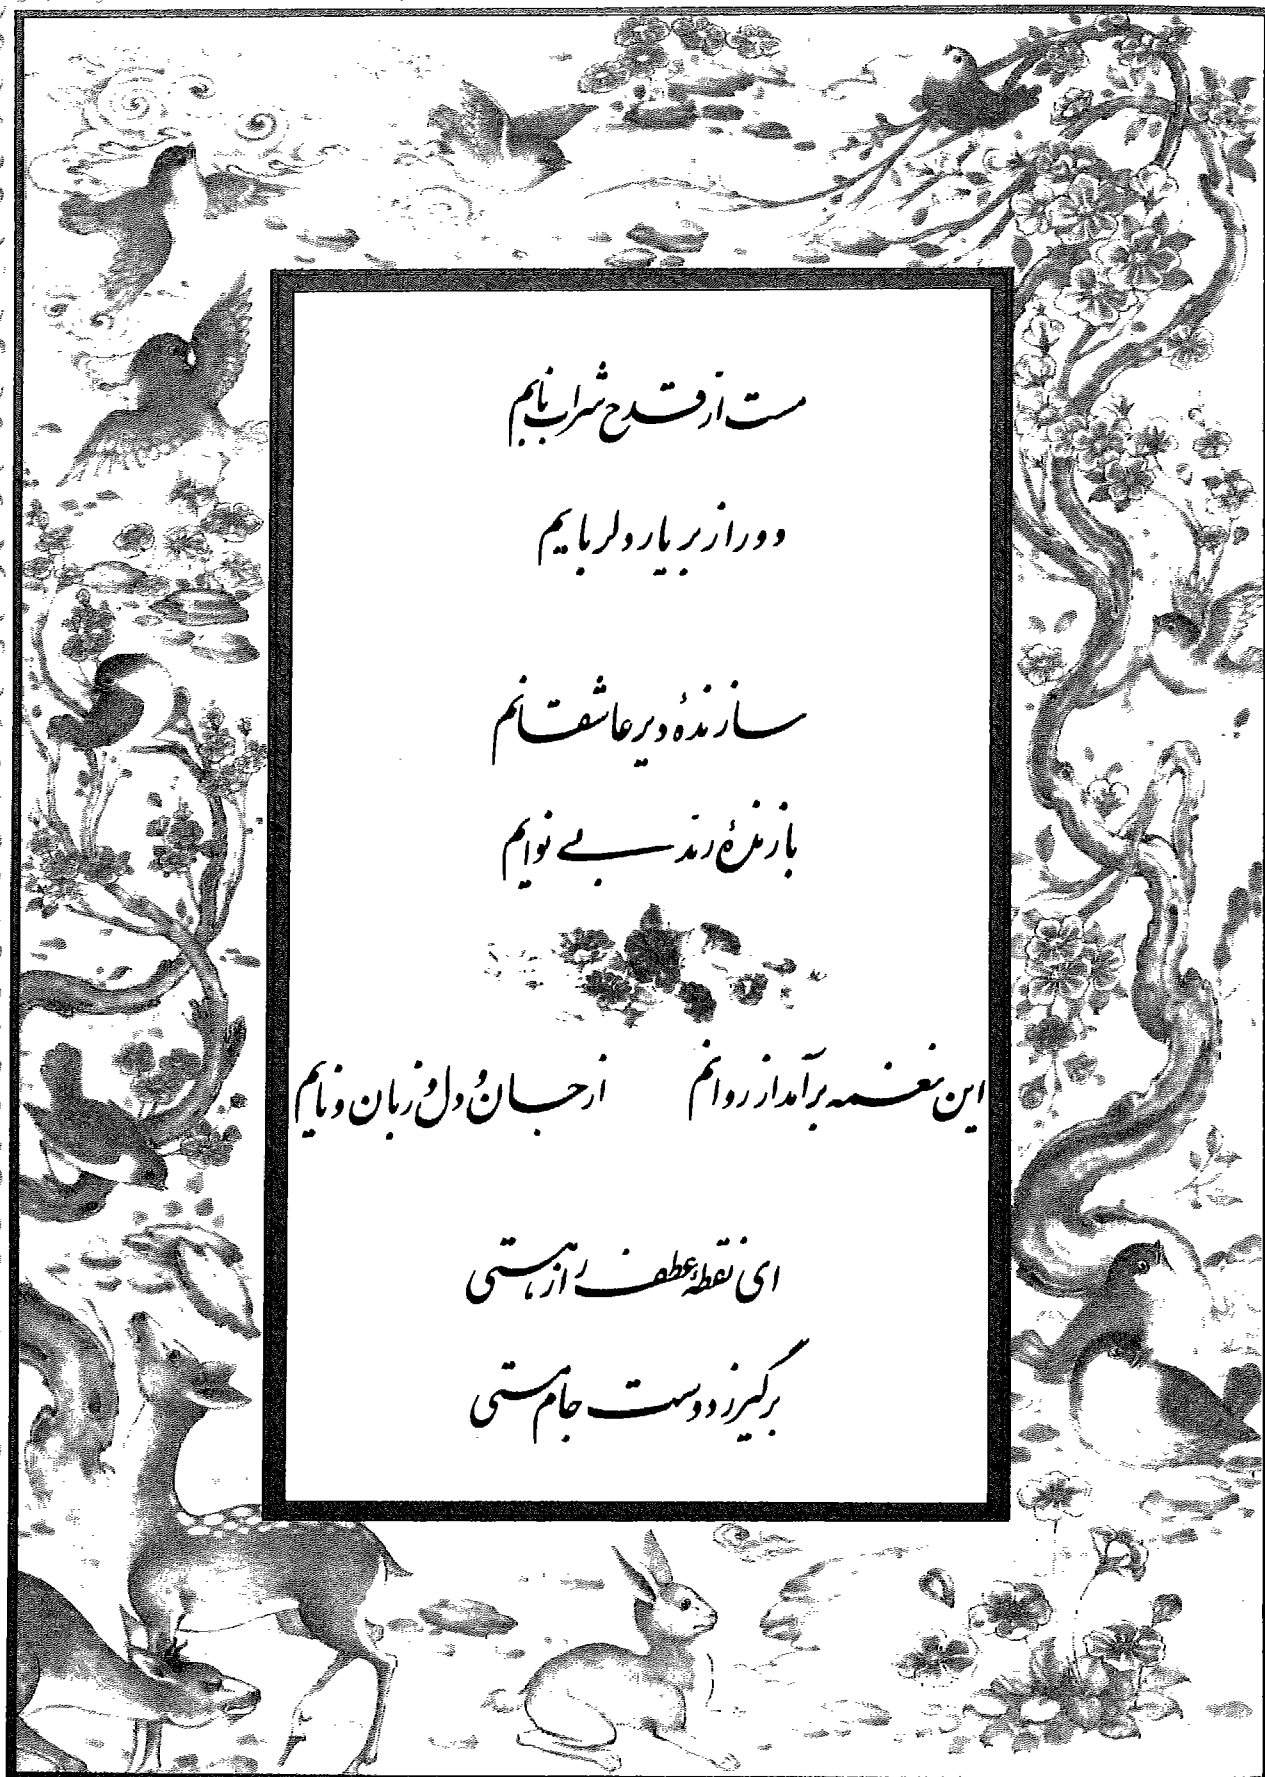 مست از قدح شراب نابم
دور از بر یار دلربایم
سازندهٔ دیر عاشقانم
بازندهٔ رند بے نوایم
این نغمه برآمد از روانم از جان و دل و زبان و نایم
ای نقطهٔ عطف راز هستی
برگیر ز دوست جام مستی